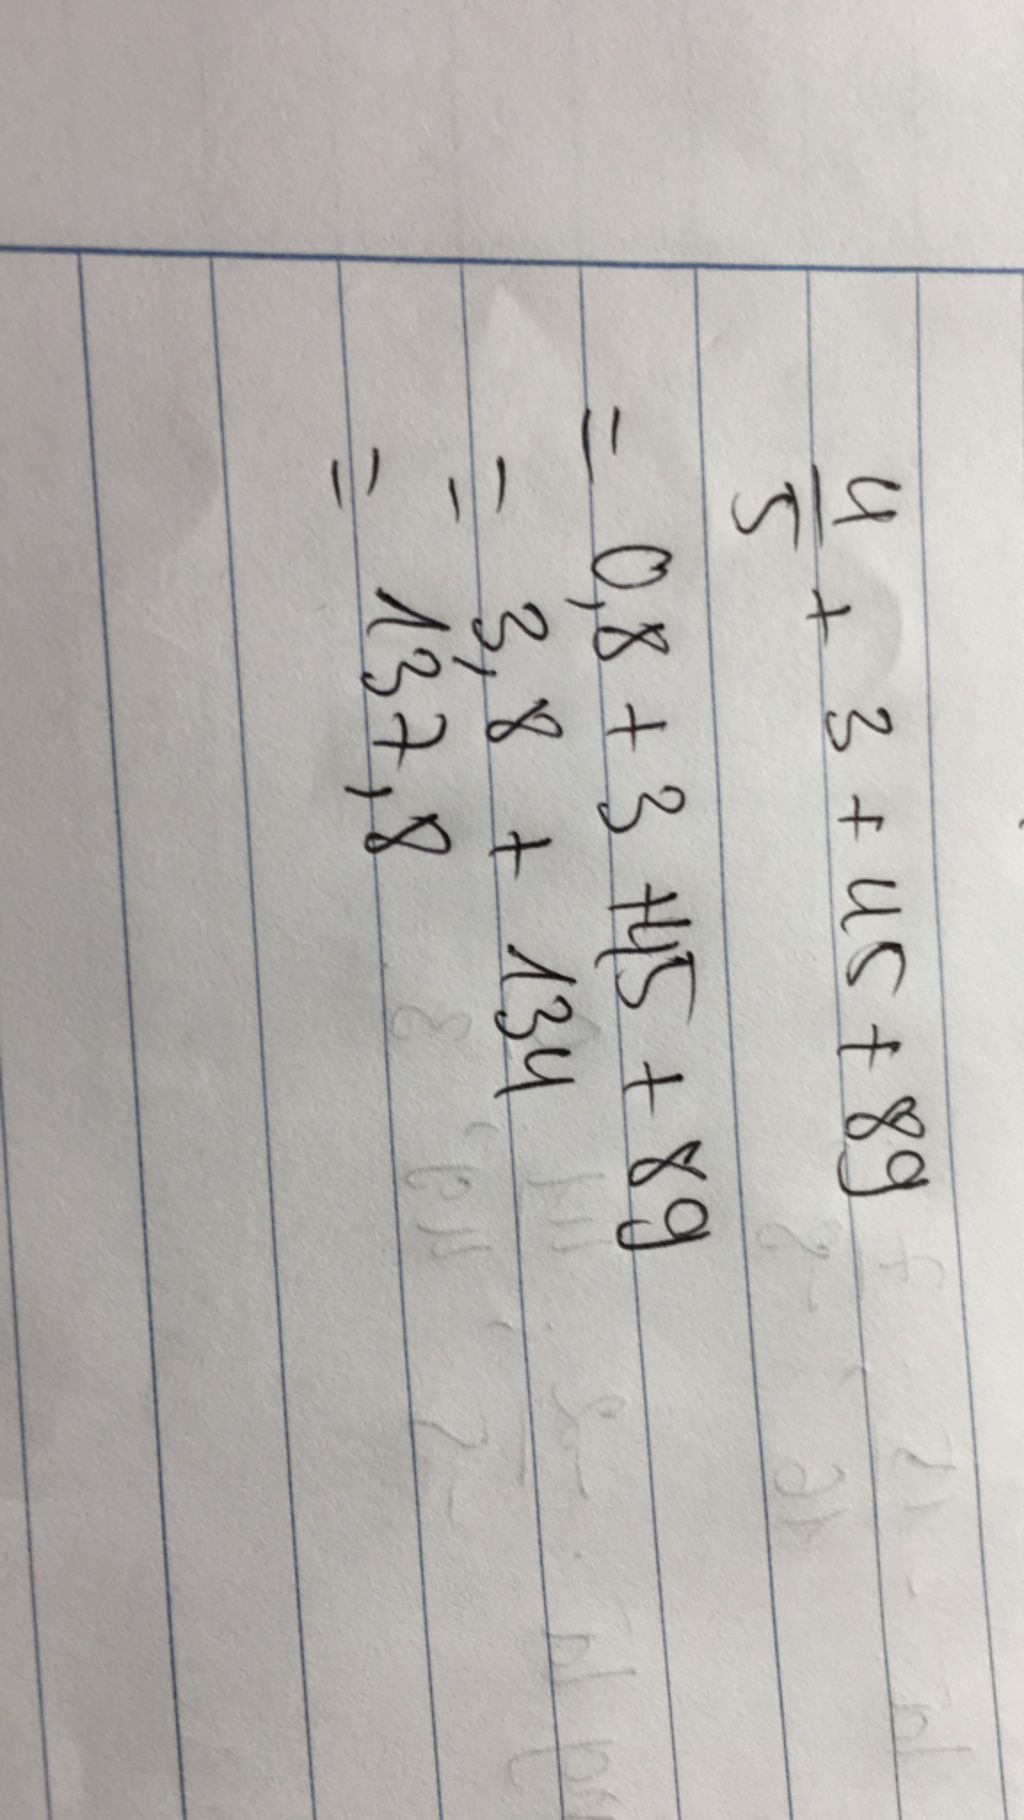 4/5 + 3 + 45 + 89
= 0,8 + 3 + 45 + 89
= 3,8 + 134
= 137,8